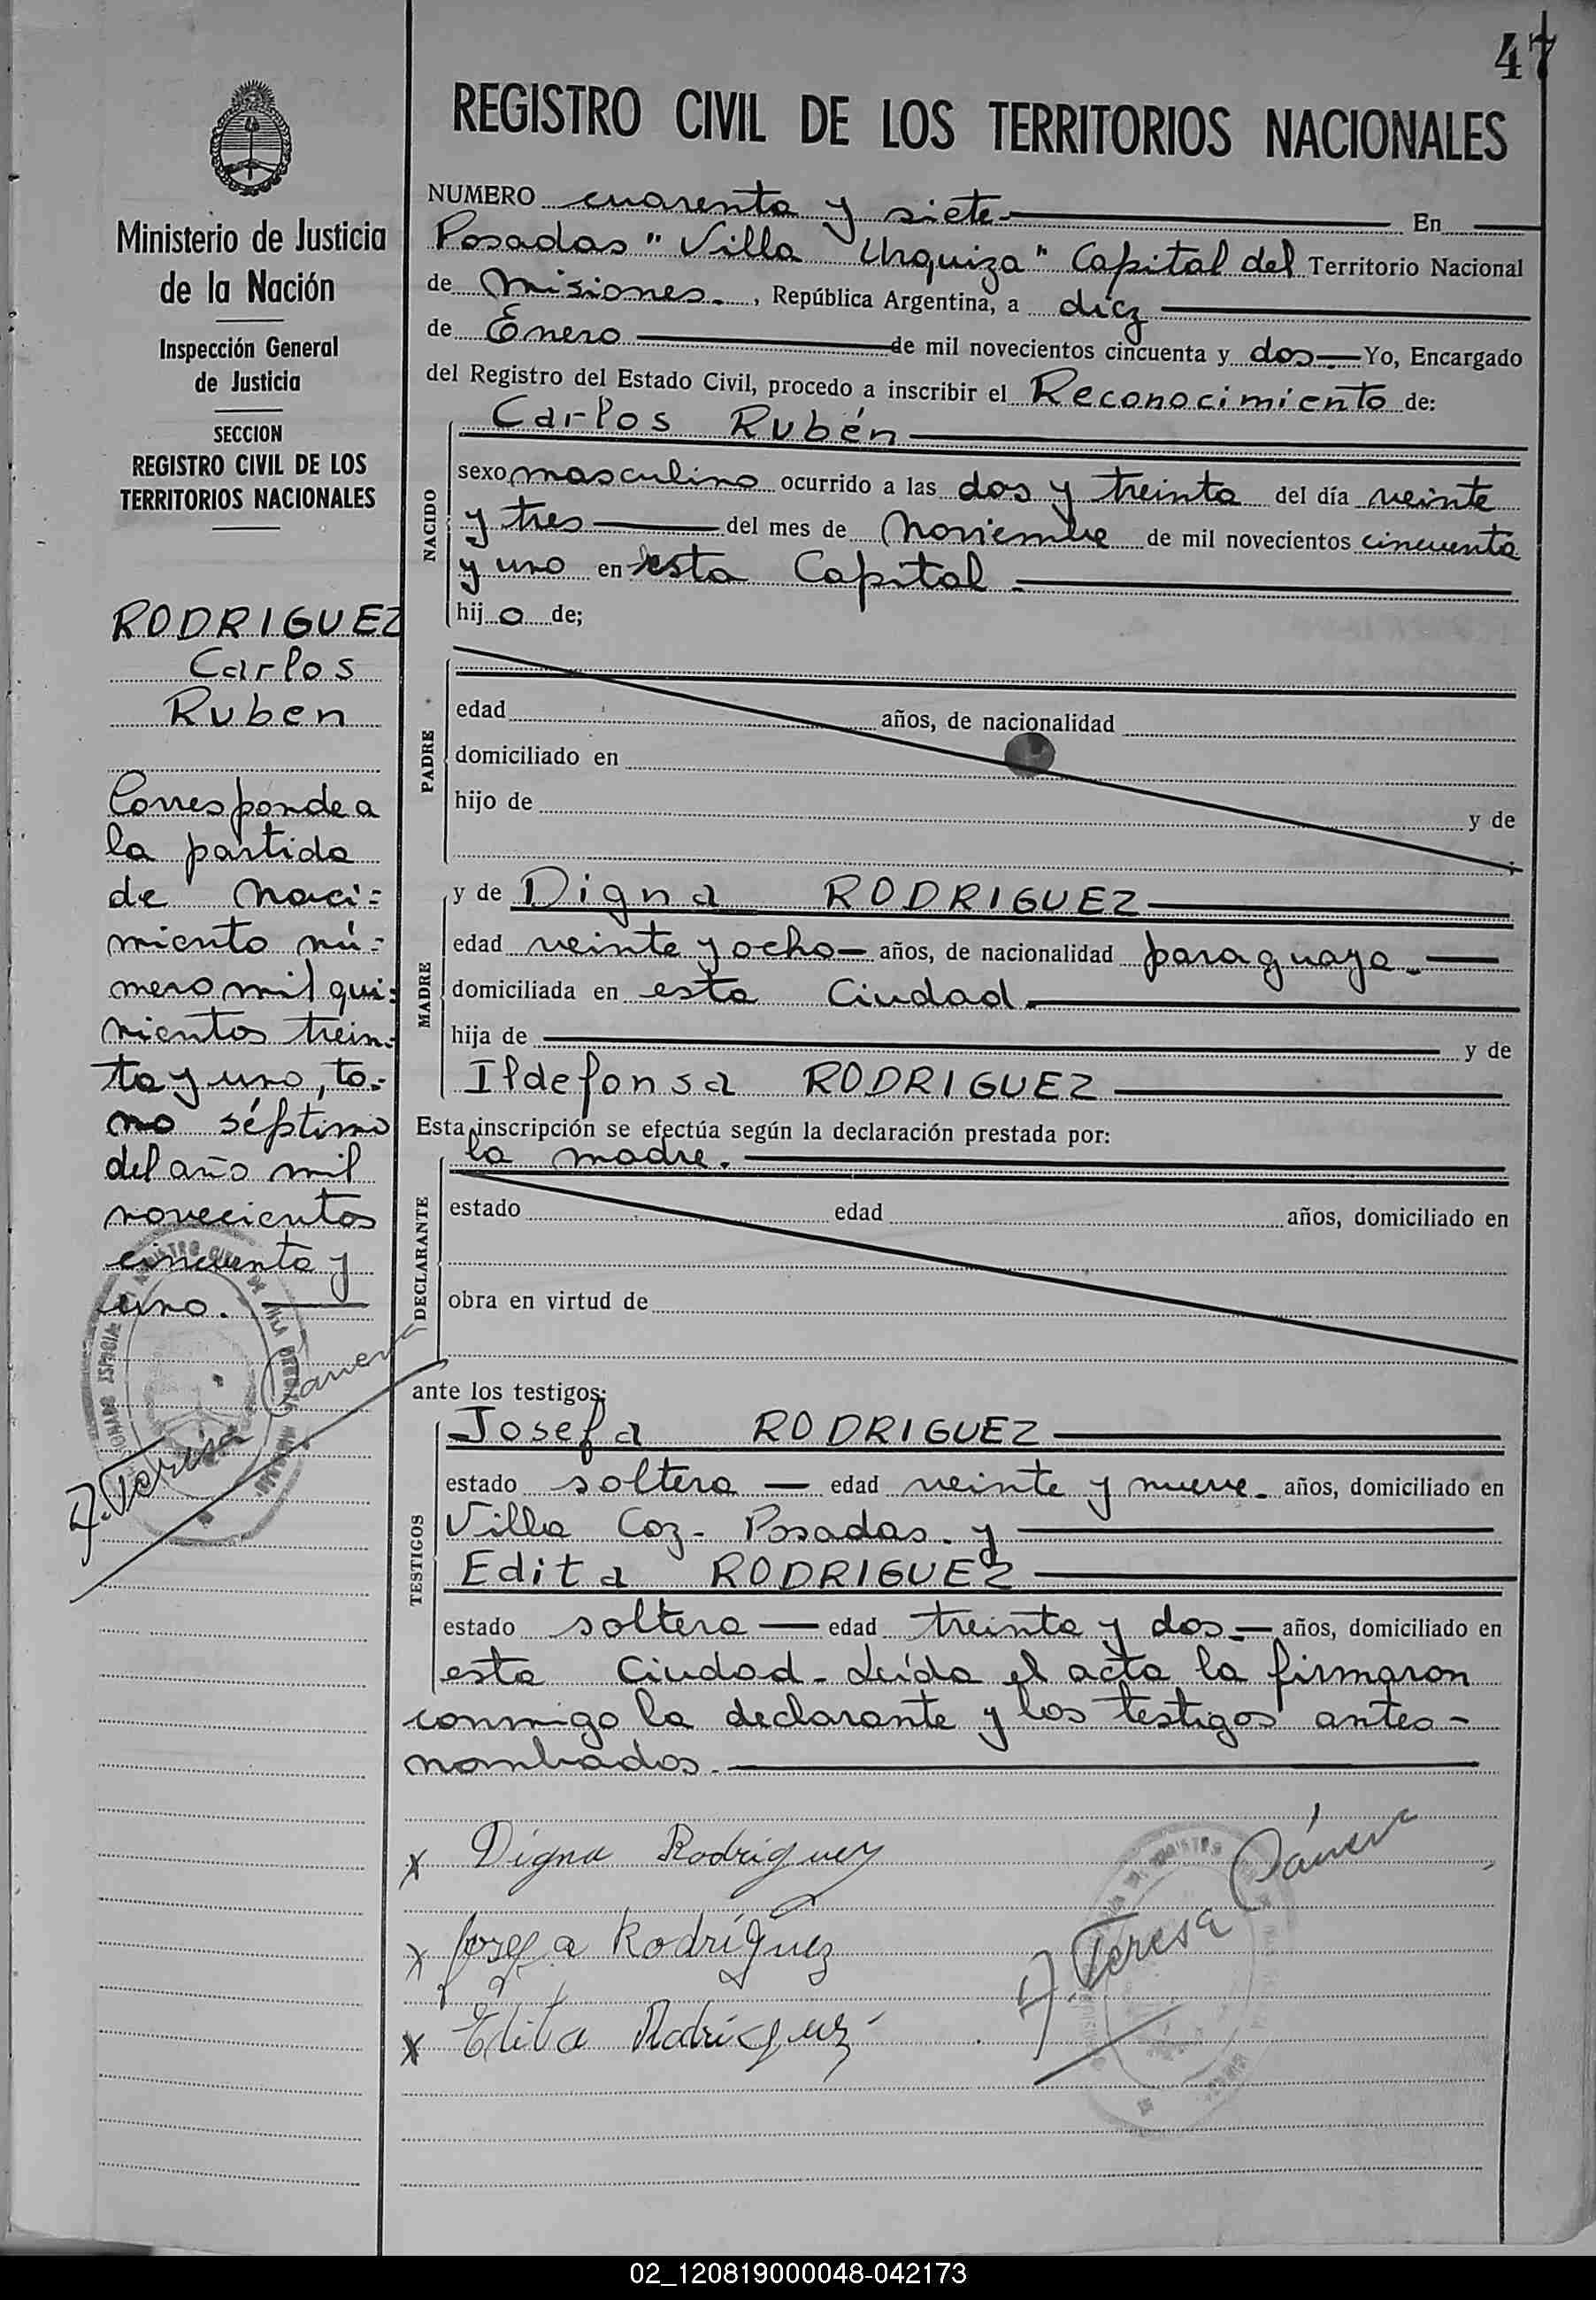 47
REGISTRO CIVIL DE LOS TERRITORIOS NACIONALES
Ministerio de Justicia
de la Nación
Inspección General
de Justicia
SECCION
REGISTRO CIVIL DE LOS
TERRITORIOS NACIONALES
RODRIGUEZ
Carlos
Ruben
Corresponde a
la partida
de naci=
miento nú=
mero mil qui=
nientos trein=
ta y uno, to=
mo séptimo
del año mil
novecientos
cincuenta y
uno.
NUMERO cuarenta y siete En
Posadas "Villa Urquiza" Capital del Territorio Nacional
de Misiones., República Argentina, a diez
de Enero de mil novecientos cincuenta y dos Yo, Encargado
del Registro del Estado Civil, procedo a inscribir el Reconocimiento de:
NACIDO
Carlos Rubén
sexo masculino ocurrido a las dos y treinta del día veinte
y tres del mes de Noviembre de mil novecientos cincuenta
y uno en esta Capital.
hijo de;
PADRE
edad años, de nacionalidad
domiciliado en
hijo de y de
MADRE
y de Digna RODRIGUEZ
edad veinte y ocho años, de nacionalidad paraguaya.
domiciliada en esta Ciudad.
hija de y de
Ildefonsa RODRIGUEZ
Esta inscripción se efectúa según la declaración prestada por:
la madre.
DECLARANTE
estado edad años, domiciliado en
obra en virtud de
ante los testigos:
TESTIGOS
Josefa RODRIGUEZ
estado soltera edad veinte y nueve. años, domiciliado en
Villa Coz- Posadas. y
Edita RODRIGUEZ
estado soltera edad treinta y dos. años, domiciliado en
esta Ciudad- Leída el acta la firmaron
conmigo la declarante y los testigos antes-
nombrados.
x Digna Rodriguez
x Josefa Rodríguez
x Edita Rodriguez
02_120819000048-042173